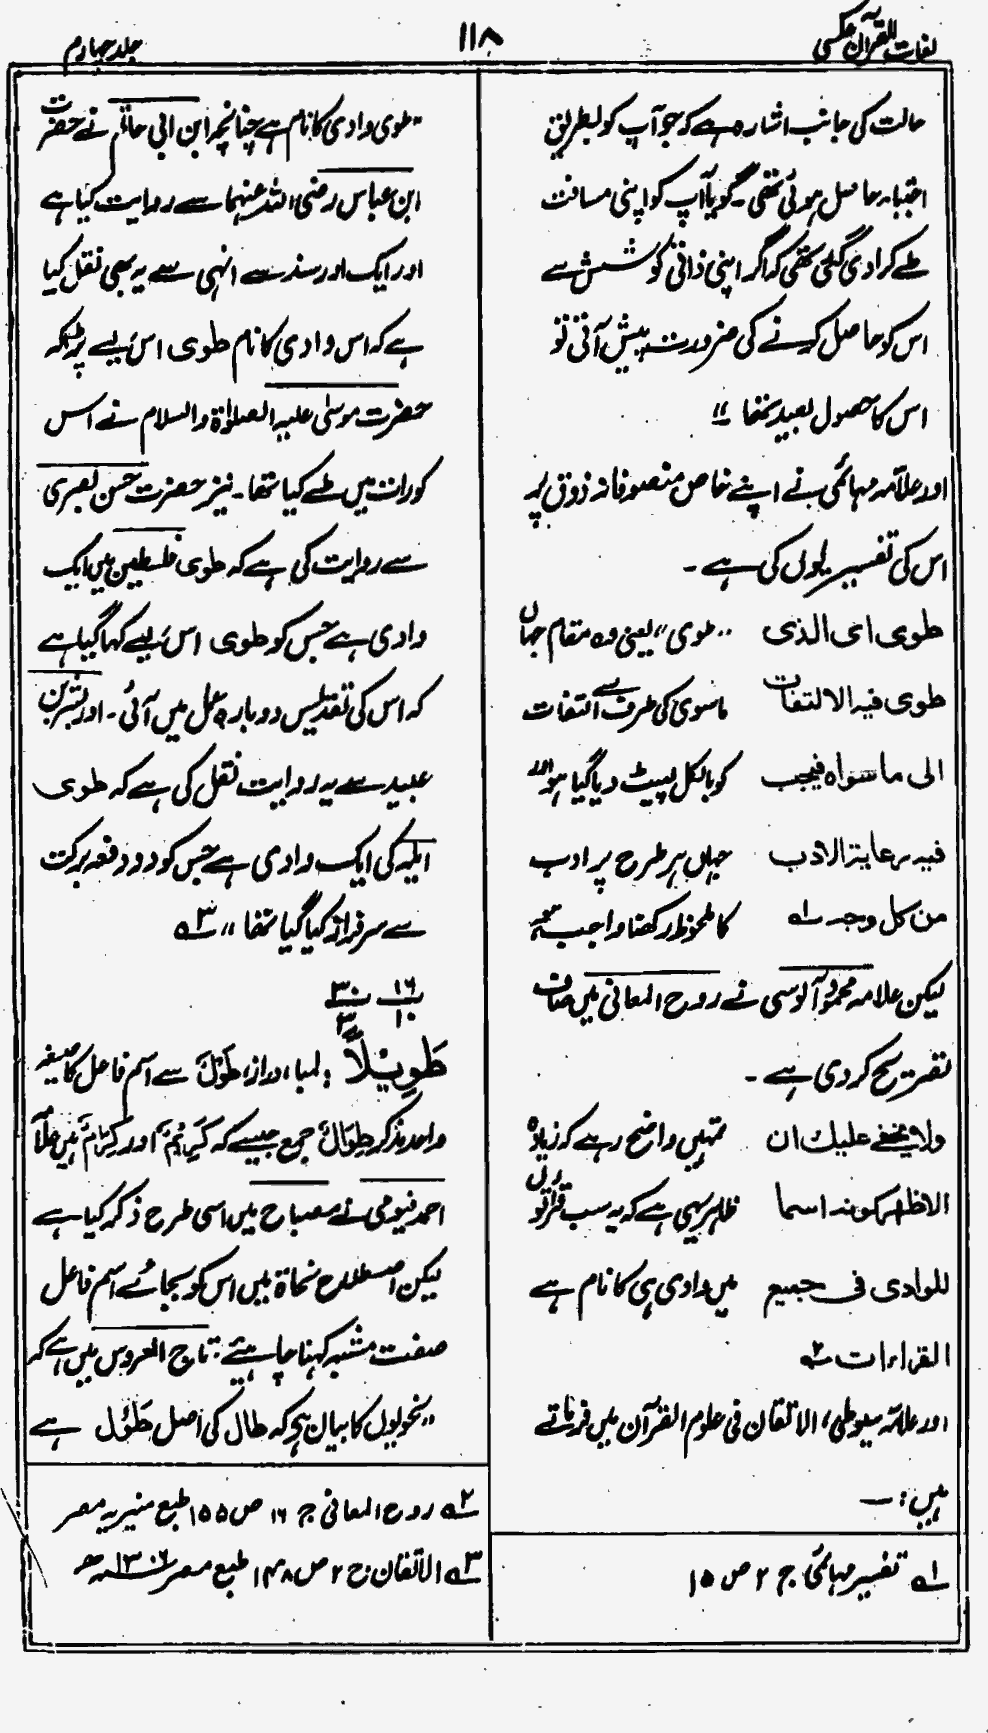 لغات القرآن عکسی
۱۱۸
جلد چہارم
حالت کی جانب اشارہ ہے کہ جو آپ کو بطریق
اجتباء حاصل ہوئی تھی۔ گویا آپ کو اپنی مسافت
طے کرا دی گئی تھی کہ اگر اپنی ذاتی کوشش سے
اس کو حاصل کرنے کی ضرورت پیش آتی تو
اس کا حصول بعید تھا ۔"
اور علامہ مہائمی نے اپنے خاص متصوفانہ ذوق پر
اس کی تفسیر یوں کی ہے ۔
طوی ای الذی
طوی فیہ الالتفات
الی ماسواہ فیجب
فیہ رعایۃ الادب
من کل وجہ ۱ہ
"طوی" یعنی وہ مقام جہاں
ماسوی کی طرف سے التفات
کو بالکل لپیٹ دیا گیا ہو اور
جہاں ہر طرح پر ادب
کا ملحوظ رکھنا واجب ہے
لیکن علامہ محمود آلوسی نے روح المعانی میں صاف
تصریح کر دی ہے ۔
ولا یخفی علیک ان
الاظہر کونہ اسما
للوادی فی جمیع
القراءات ۲ہ
تمہیں واضح رہے کہ زیادہ
ظاہر یہی ہے کہ یہ سب قراتوں
میں وادی ہی کا نام ہے
اور علامہ سیوطی، الاتقان فی علوم القرآن میں فرماتے
ہیں :—
۱ہ تفسیر مہائمی ج ۲ ص ۱۵
"طوی وادی کا نام ہے چنانچہ ابن ابی حاتم نے حضرت
ابن عباس رضی اللہ عنہما سے روایت کیا ہے
اور ایک اور سند سے انہی سے یہ بھی نقل کیا
ہے کہ اس وادی کا نام طوی اس لیے پڑا کہ
حضرت موسیٰ علیہ الصلوٰۃ والسلام نے اس
کو رات میں طے کیا تھا۔ نیز حضرت حسن بصری
سے روایت کی ہے کہ طوی فلسطین میں ایک
وادی ہے جس کو طوی اس لیے کہا گیا ہے
کہ اس کی تقدیس دوبارہ عمل میں آئی۔ اور بشر بن
عبید سے یہ روایت نقل کی ہے کہ طوی
ایلہ کی ایک وادی ہے جس کو دو دفعہ برکت
سے سرفراز کیا گیا تھا" ۳ہ
۱۶ ۳۰
۱۰ ۳
طَوِیْلاً : لمبا، دراز، طُوْلٌ سے اسم فاعل کا صیغہ
واحد مذکر طِوَالٌ جمع جیسے کہ کَرِیْمٌ اور کِرَامٌ ہیں علامہ
احمد فیومی نے مصباح میں اسی طرح ذکر کیا ہے
لیکن اصطلاح نحاۃ میں اس کو بجائے اسم فاعل
صفت مشبہ کہنا چاہیئے۔ تاج العروس میں ہے کہ
"نحویوں کا بیان ہے کہ طال کی اصل طَوُلَ ہے
۲ہ روح المعانی ج ۱۶ ص ۱۵۵ طبع منیریہ مصر
۳ہ الاتقان ج ۲ ص ۱۴۸ طبع مصر ۱۳۰۶ھ